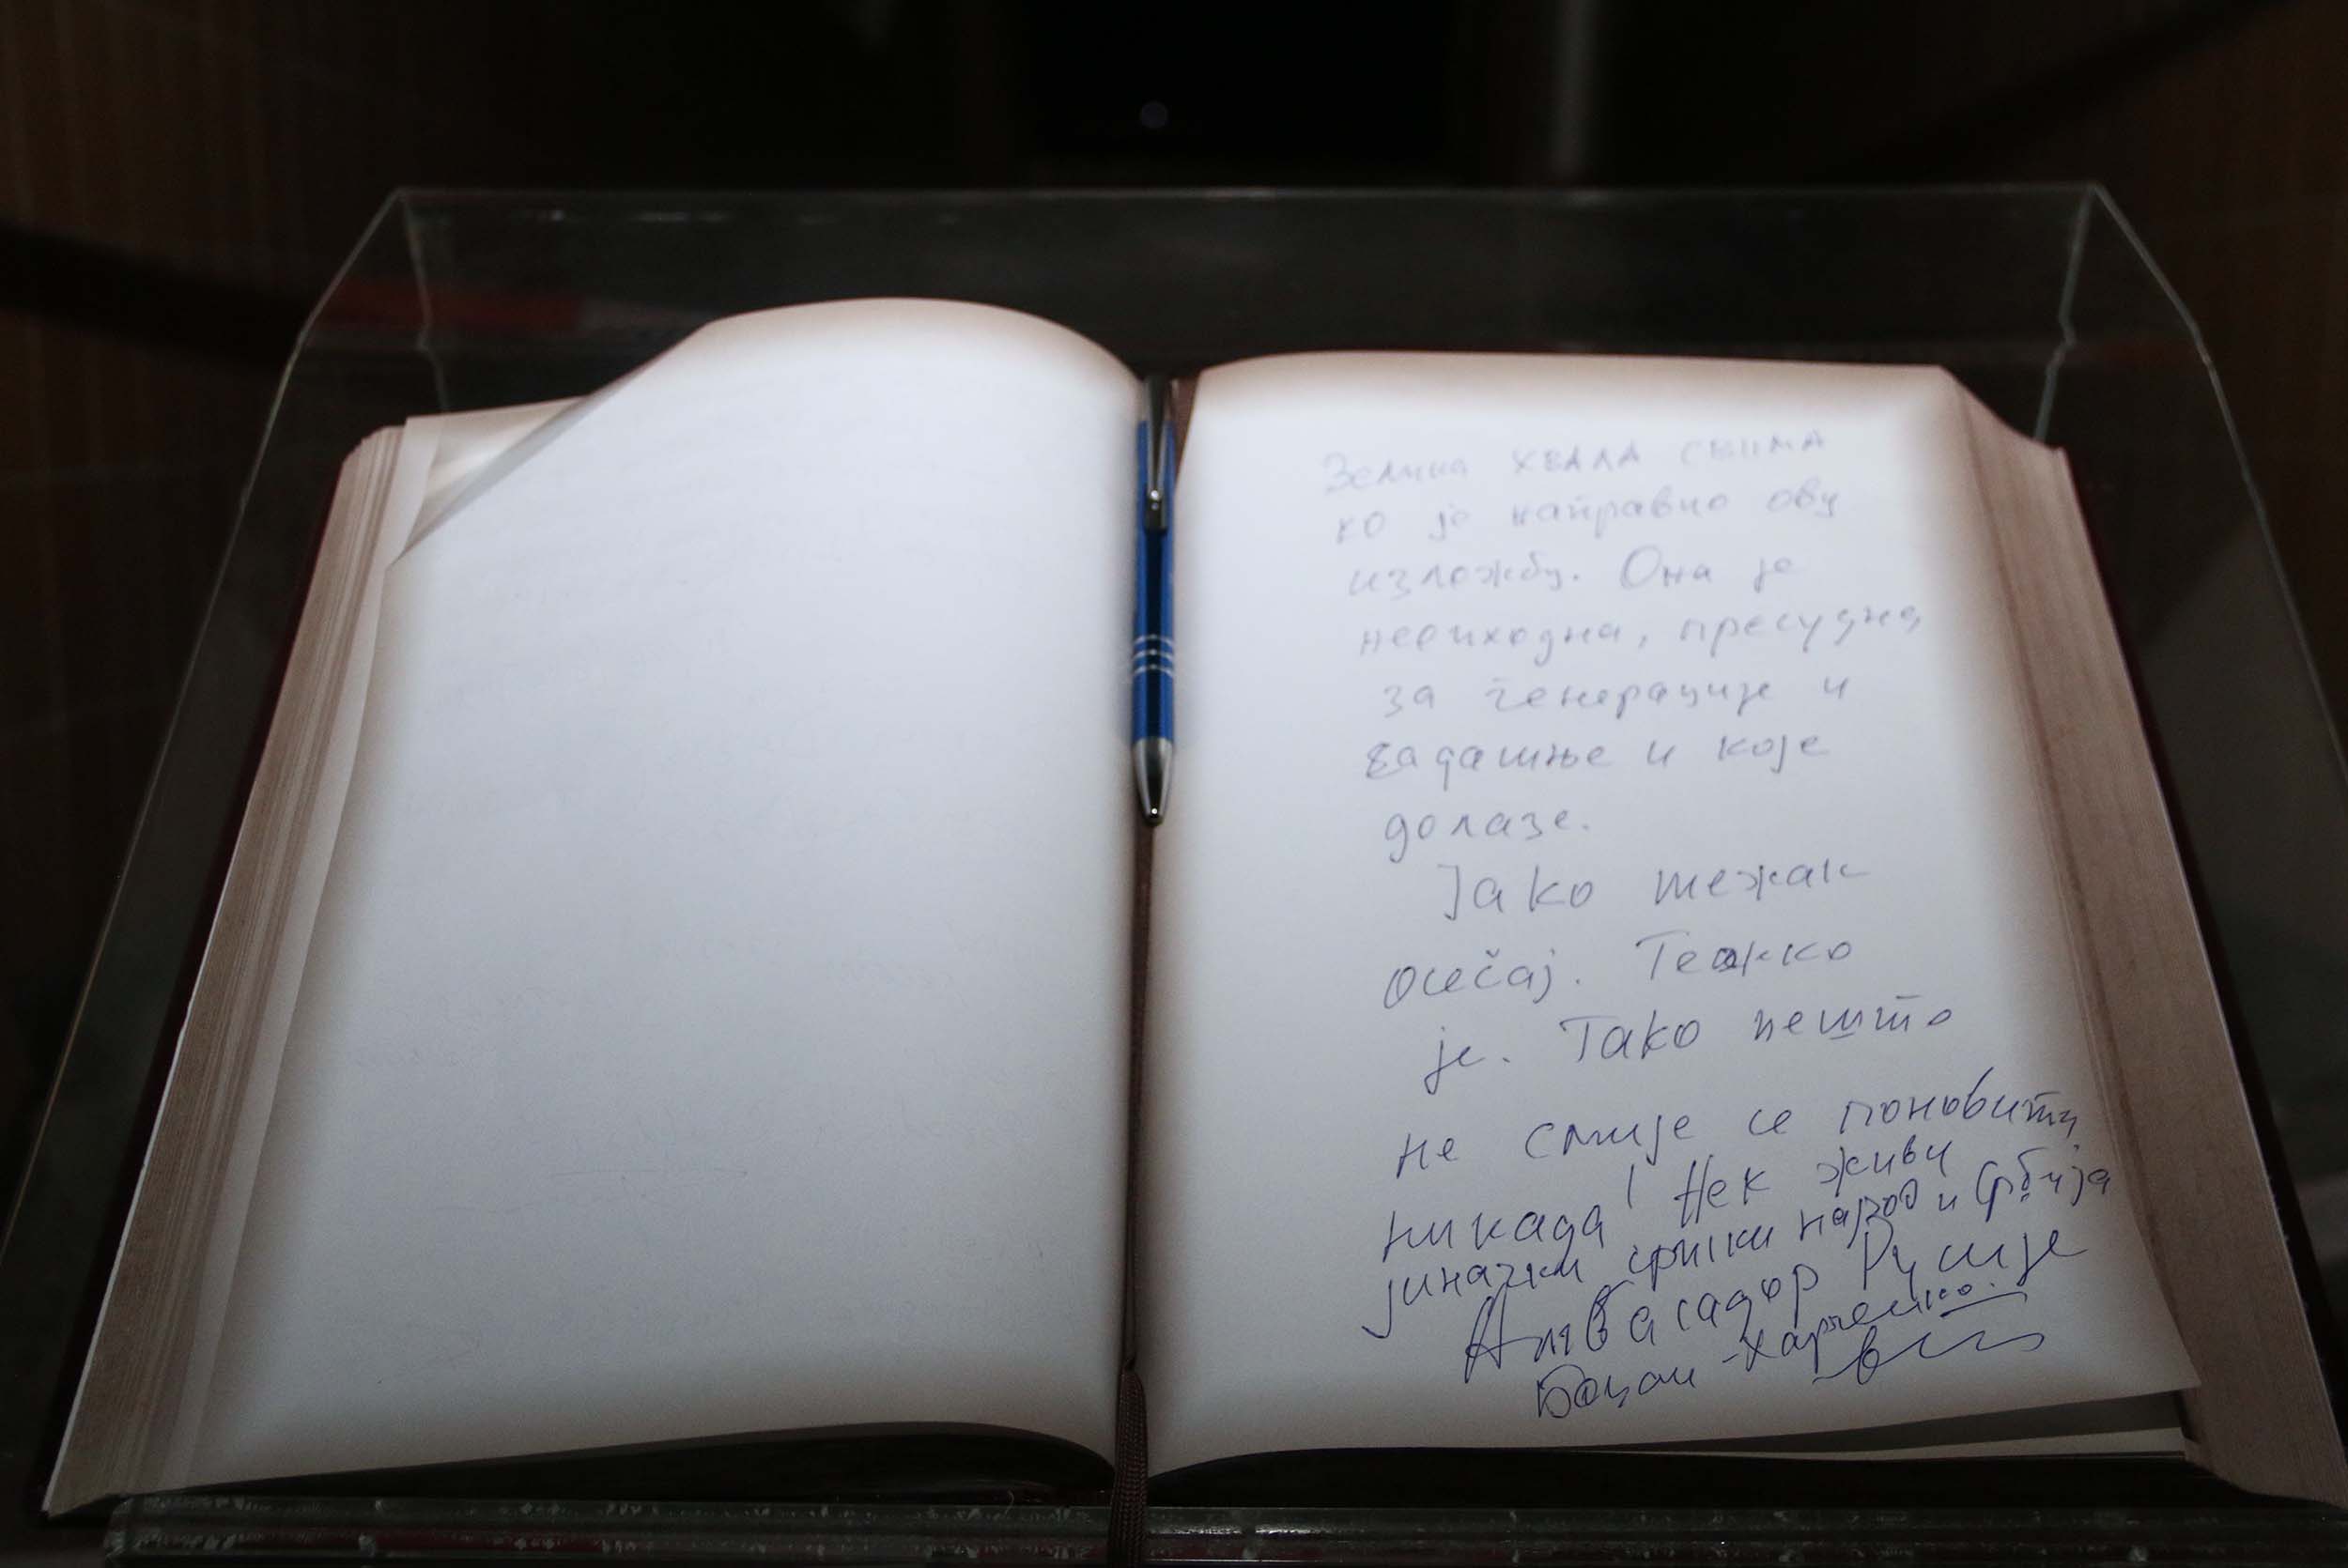 Велика ХВАЛА СВИМА
ко је найравио ову
изложбу. Она је
неопходна, пресудна
за генерације и
садашње и које
долазе.
Јако тежак
осеčај. Тежко
је. Тако нешто
не смије се поновити
никада! Нек живи
јуначки српски народ и Србија
Амбасадор Русије
Боцан-Харченко